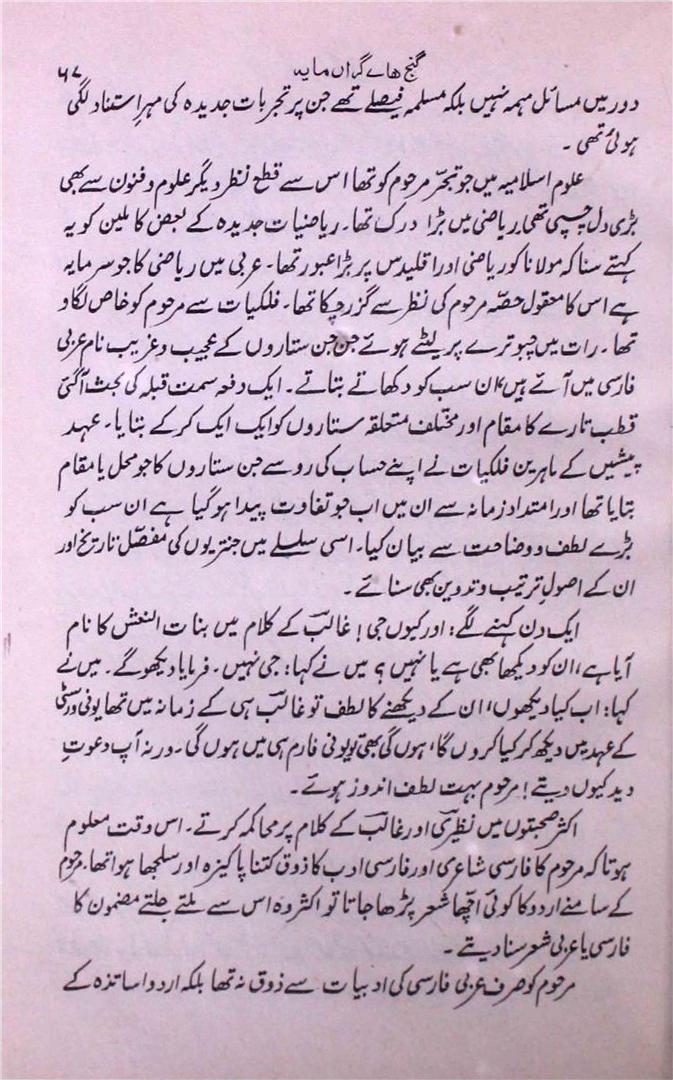 گنج ھاے گراں مایہ ۶۷
دور میں مسائل مہمہ نہیں بلکہ مسلمہ فیصلے تھے جن پر تجربات جدیدہ کی مہرِ استناد لگی
ہوئی تھی۔
علوم اسلامیہ میں جو تبحّر مرحوم کو تھا اس سے قطع نظر دیگر علوم و فنون سے بھی
بڑی دل چسپی تھی۔ ریاضی میں بڑا درک تھا۔ ریاضیات جدیدہ کے بعض کاملین کو یہ
کہتے سنا کہ مولانا کو ریاضی اور اقلیدس پر بڑا عبور تھا۔ عربی میں ریاضی کا جو سرمایہ
ہے اس کا معقول حصّہ مرحوم کی نظر سے گزر چکا تھا۔ فلکیات سے مرحوم کو خاص لگاو
تھا۔ رات میں چبوترے پر لیٹے ہوئے جن جن ستاروں کے عجیب و غریب نام عربی
فارسی میں آئے ہیں، ان سب کو دکھاتے بتاتے۔ ایک دفعہ سمت قبلہ کی بحث آگئی
قطب تارے کا مقام اور مختلف متعلقہ ستاروں کو ایک ایک کر کے بتایا۔ عہد
پیشیں کے ماہرین فلکیات نے اپنے حساب کی رو سے جن ستاروں کا جو محل یا مقام
بتایا تھا اور امتداد زمانہ سے ان میں اب جو تفاوت پیدا ہو گیا ہے ان سب کو
بڑے لطف و وضاحت سے بیان کیا۔ اسی سلسلے میں جنتریوں کی مفصّل تاریخ اور
ان کے اصولِ ترتیب و تدوین بھی سنائے۔
ایک دن کہنے لگے: اور کیوں جی! غالبؔ کے کلام میں بنات النعش کا نام
آیا ہے، ان کو دیکھا بھی ہے یا نہیں؟ میں نے کہا: جی نہیں۔ فرمایا دیکھو گے۔ میں نے
کہا: اب کیا دیکھوں، ان کے دیکھنے کا لطف تو غالبؔ ہی کے زمانہ میں تھا یونی ورسٹی
کے عہد میں دیکھ کر کیا کروں گا، ہوں گی بھی تو یونی فارم ہی میں ہوں گی۔ ورنہ آپ دعوتِ
دید کیوں دیتے! مرحوم بہت لطف اندوز ہوئے۔
اکثر صحبتوں میں نظیریؔ اور غالبؔ کے کلام پر محاکمہ کرتے۔ اس وقت معلوم
ہوتا کہ مرحوم کا فارسی شاعری اور فارسی ادب کا ذوق کتنا پاکیزہ اور سلجھا ہوا تھا۔ مرحوم
کے سامنے اردو کا کوئی اچّھا شعر پڑھا جاتا تو اکثر وہ اس سے ملتے جلتے مضمون کا
فارسی یا عربی شعر سنا دیتے۔
مرحوم کو صرف عربی فارسی کی ادبیات سے ذوق نہ تھا بلکہ اردو اساتذہ کے